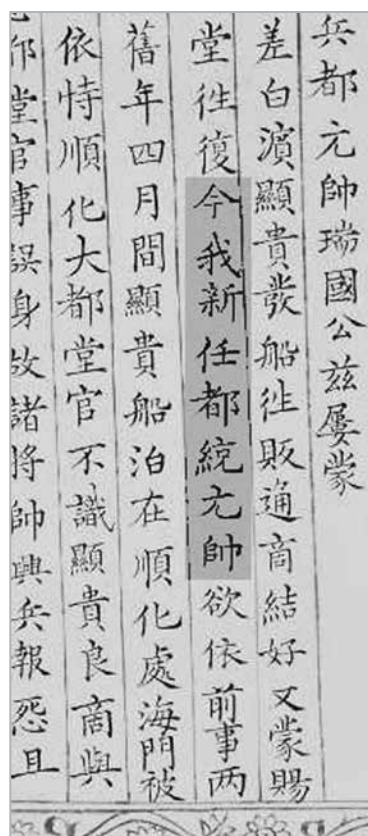 兵都元帥瑞國公兹屡蒙
差白濵顯貴發船徃販通商結好又蒙賜
堂徃復今我新任都統元帥欲依前事两
舊年四月間顯貴船泊在順化處海門被
依恃順化大都堂官不識顯貴良商與
邡堂官事誤身故諸將帥興兵報怨且